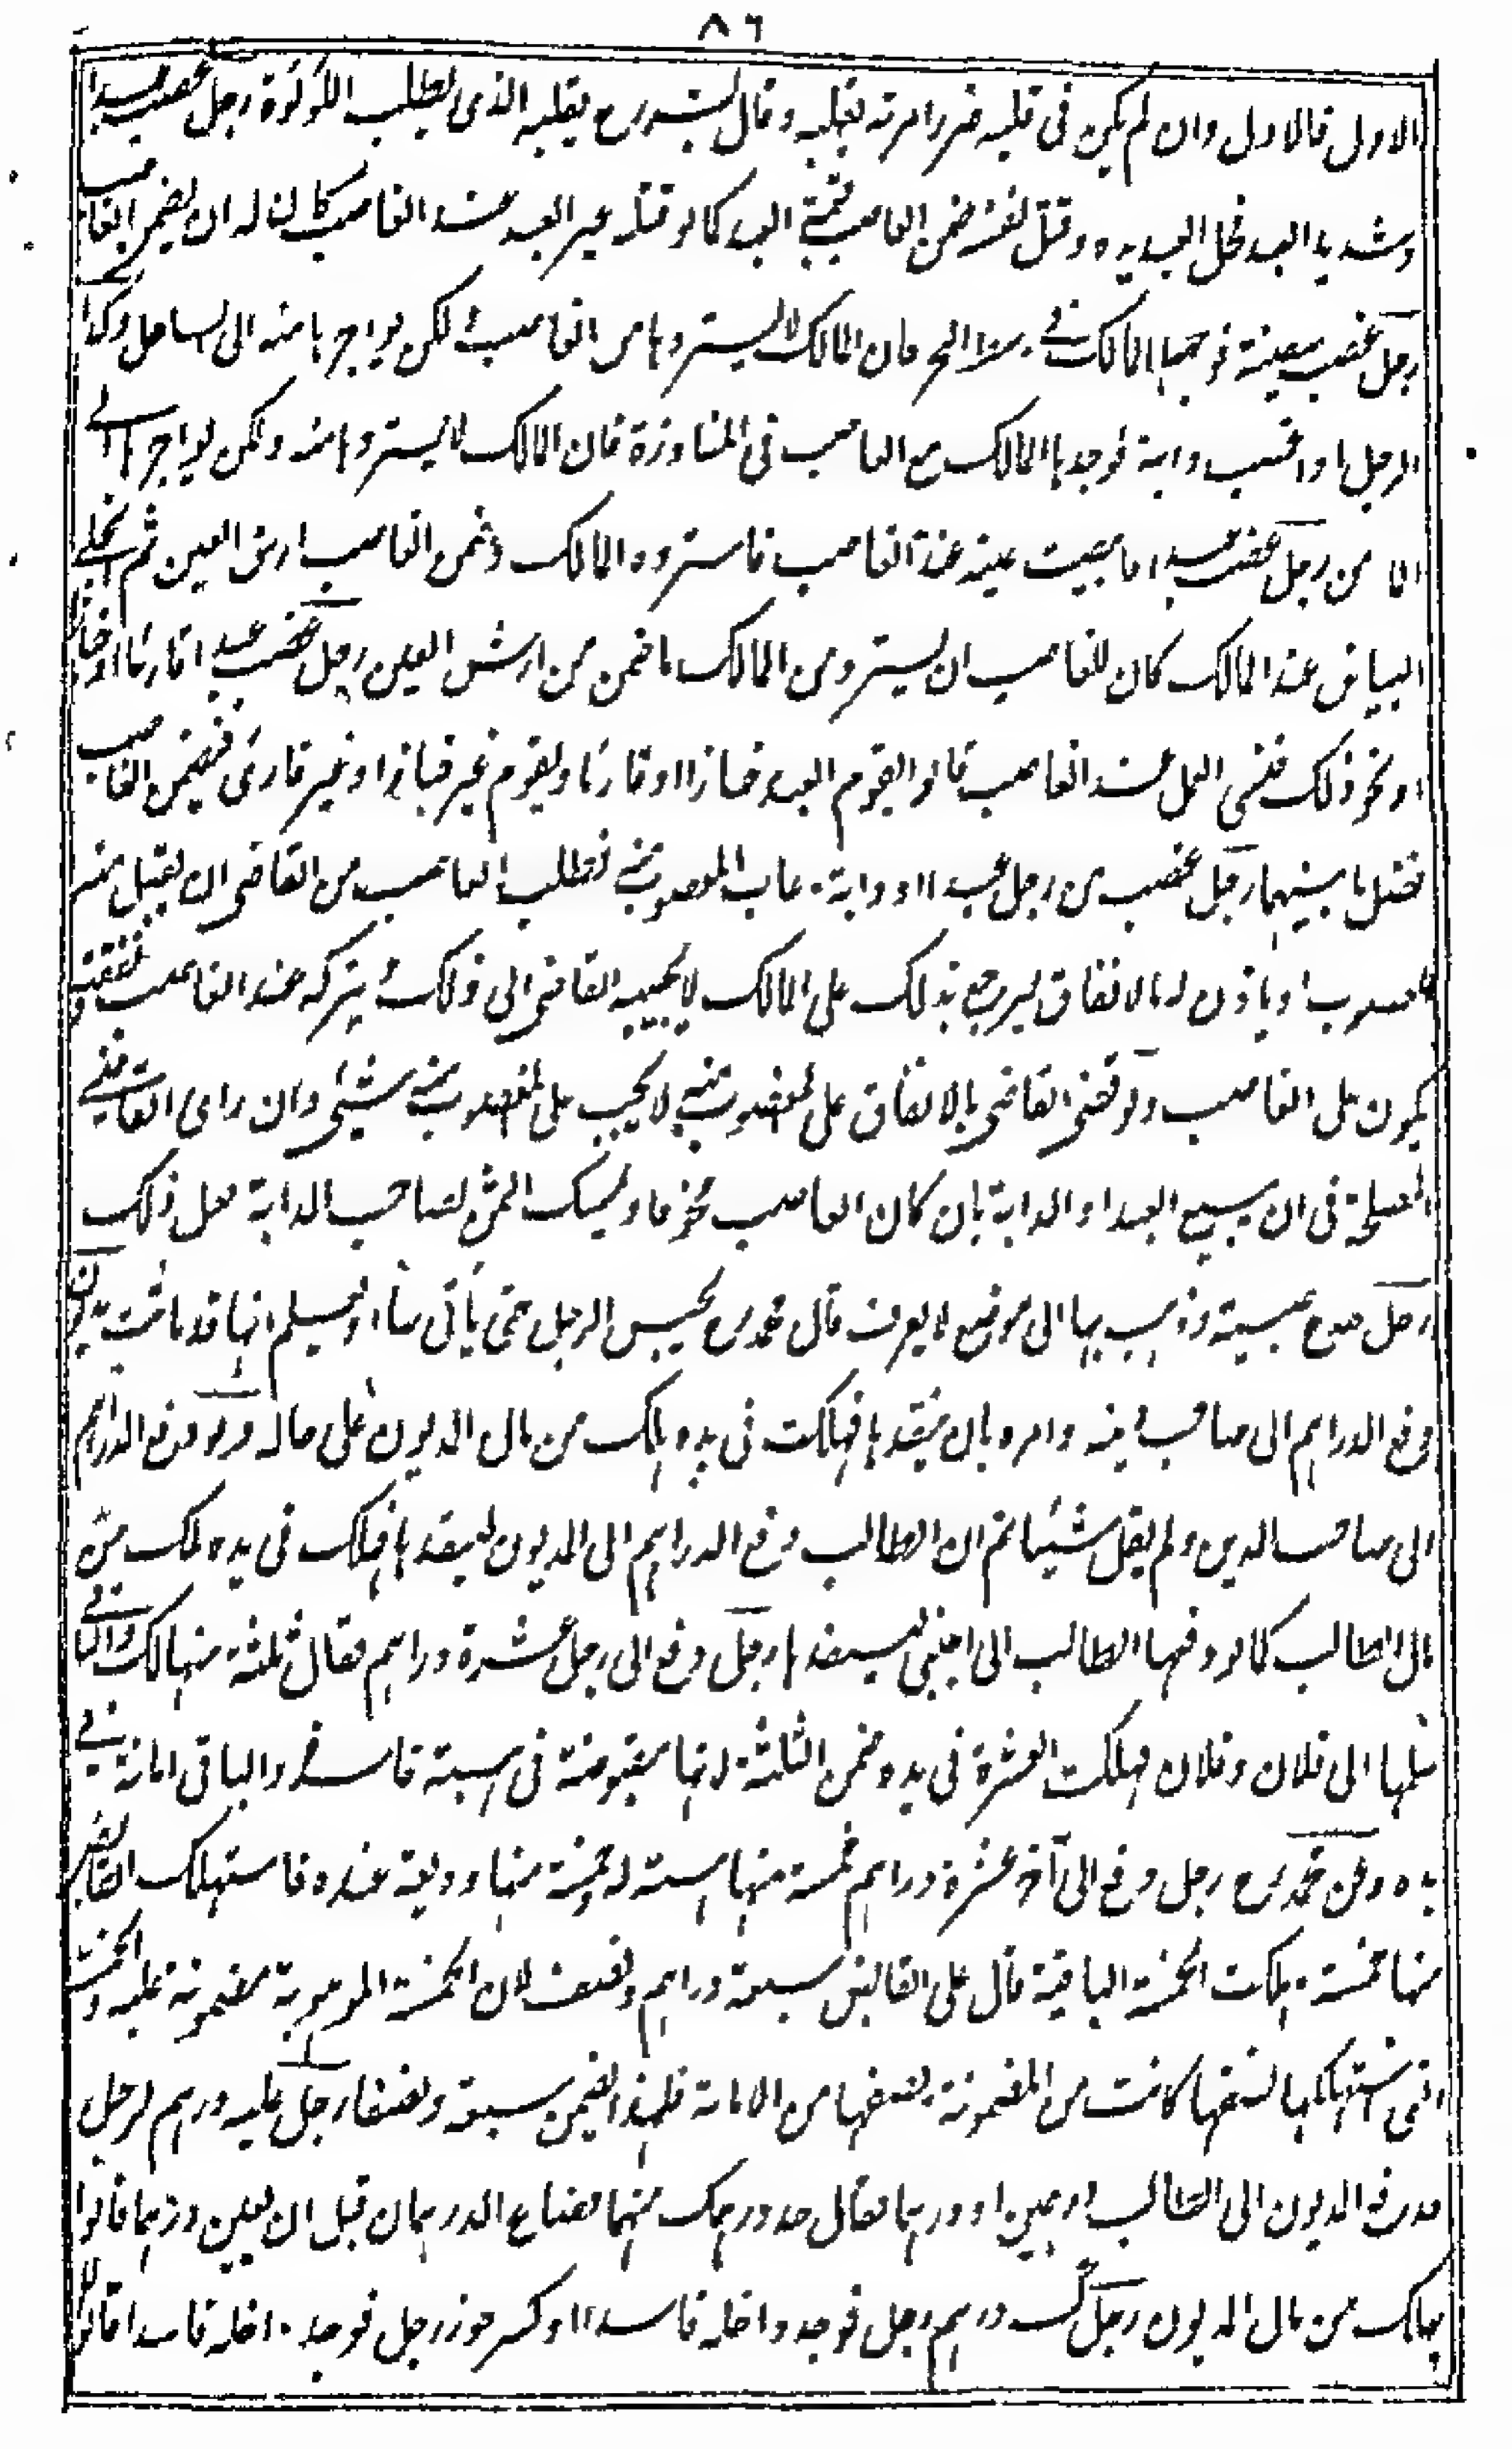 ٨٦
الاول فالاول وان لم يكن فى قلبه ضرر امرته بقلبه وقال بشر رح يقلبه الذى يطلب اللؤلؤة رجل غصب عبدا
وشد يد العبد فحل العبد يده وقتل نفسه ضمن الغاصب قيمة العبد كما لو قتله غير العبد عند الغاصب كان له ان يضمن الغاصب
رجل غصب سفينة فوجدها المالك فى وسط البحر فان المالك لا يستردها من الغاصب لكن يواجرها منه الى الساحل وكذا
الرجل اذا غصب دابة فوجدها المالك مع الغاصب فى المفازة فان المالك لا يستردها منه ولكن يواجرها الى
المامن رجل غصب عبدا فابيضت عينه عند الغاصب فاسترده المالك وضمن الغاصب ارش العين ثم انجلى
البياض عند المالك كان للغاصب ان يسترد من المالك ما ضمن من ارش العين رجل غصب عبدا قارئا او خبازا
او نحو ذلك فنسى العمل عند الغاصب قالوا يقوم العبد خبازا او قارئا ويقوم غير خباز او غير قارئ فيضمن الغاصب
فضل ما بينهما رجل غصب من رجل عبدا او دابة وغاب المغصوب منه فطلب الغاصب من القاضى ان يقبل منه
المغصوب او ياذن له بالانفاق ليرجع بذلك على المالك لا يجيبه القاضى الى ذلك و يتركه عند الغاصب ونفقته
يكون على الغاصب ولو قضى القاضى بالانفاق على المغصوب منه لا يجب على المغصوب منه شئ وان راى القاضى
المصلحة فى ان يبيع العبد او الدابة بان كان الغاصب مخوفا ويمسك الثمن لصاحب الدابة فعل ذلك
رجل خدع صبية وذهب بها الى موضع لا يعرف قال محمد رح يحبس الرجل حتى ياتى بها او يعلم انها قد ماتت مديون
دفع الدراهم الى صاحب دينه وامره بان ينقدها فهلكت فى يده هلك من مال المديون على حاله ولو دفع الدراهم
الى صاحب الدين ولم يقل شيئا ثم ان الطالب دفع الدراهم الى المديون لينقدها فهلك فى يده هلك من
مال الطالب كما لو دفعها الطالب الى اجنبى لينقدها رجل دفع الى رجل عشرة دراهم فقال ثلثة منها لك والباقى
سلمها الى فلان وفلان فهلكت العشرة فى يده ضمن الثلثة لانها مقبوضة فى هبة فاسدة والباقى امانة فى
يده وعن محمد رح رجل دفع الى آخر عشرة دراهم خمسة منها هبة له وخمسة منها وديعة عنده فاستهلك القابض
منها خمسة وهلكت الخمسة الباقية قال على القابض سبعة دراهم ونصف لان الخمسة الموهوبة مضمونة عليه والخمسة
التى استهلكها نصفها كانت من المضمونة ونصفها من الامانة فلهذا يضمن سبعة ونصفا رجل عليه درهم لرجل
فدفع المديون الى الطالب درهمين او درهما فقال خذ درهمك منهما فضاع الدرهمان قبل ان يعين درهما قالوا
هلك من مال المديون رجل كسر درهم رجل فوجد داخله فاسدا او كسر جوز رجل فوجد داخله فاسدا قالوا